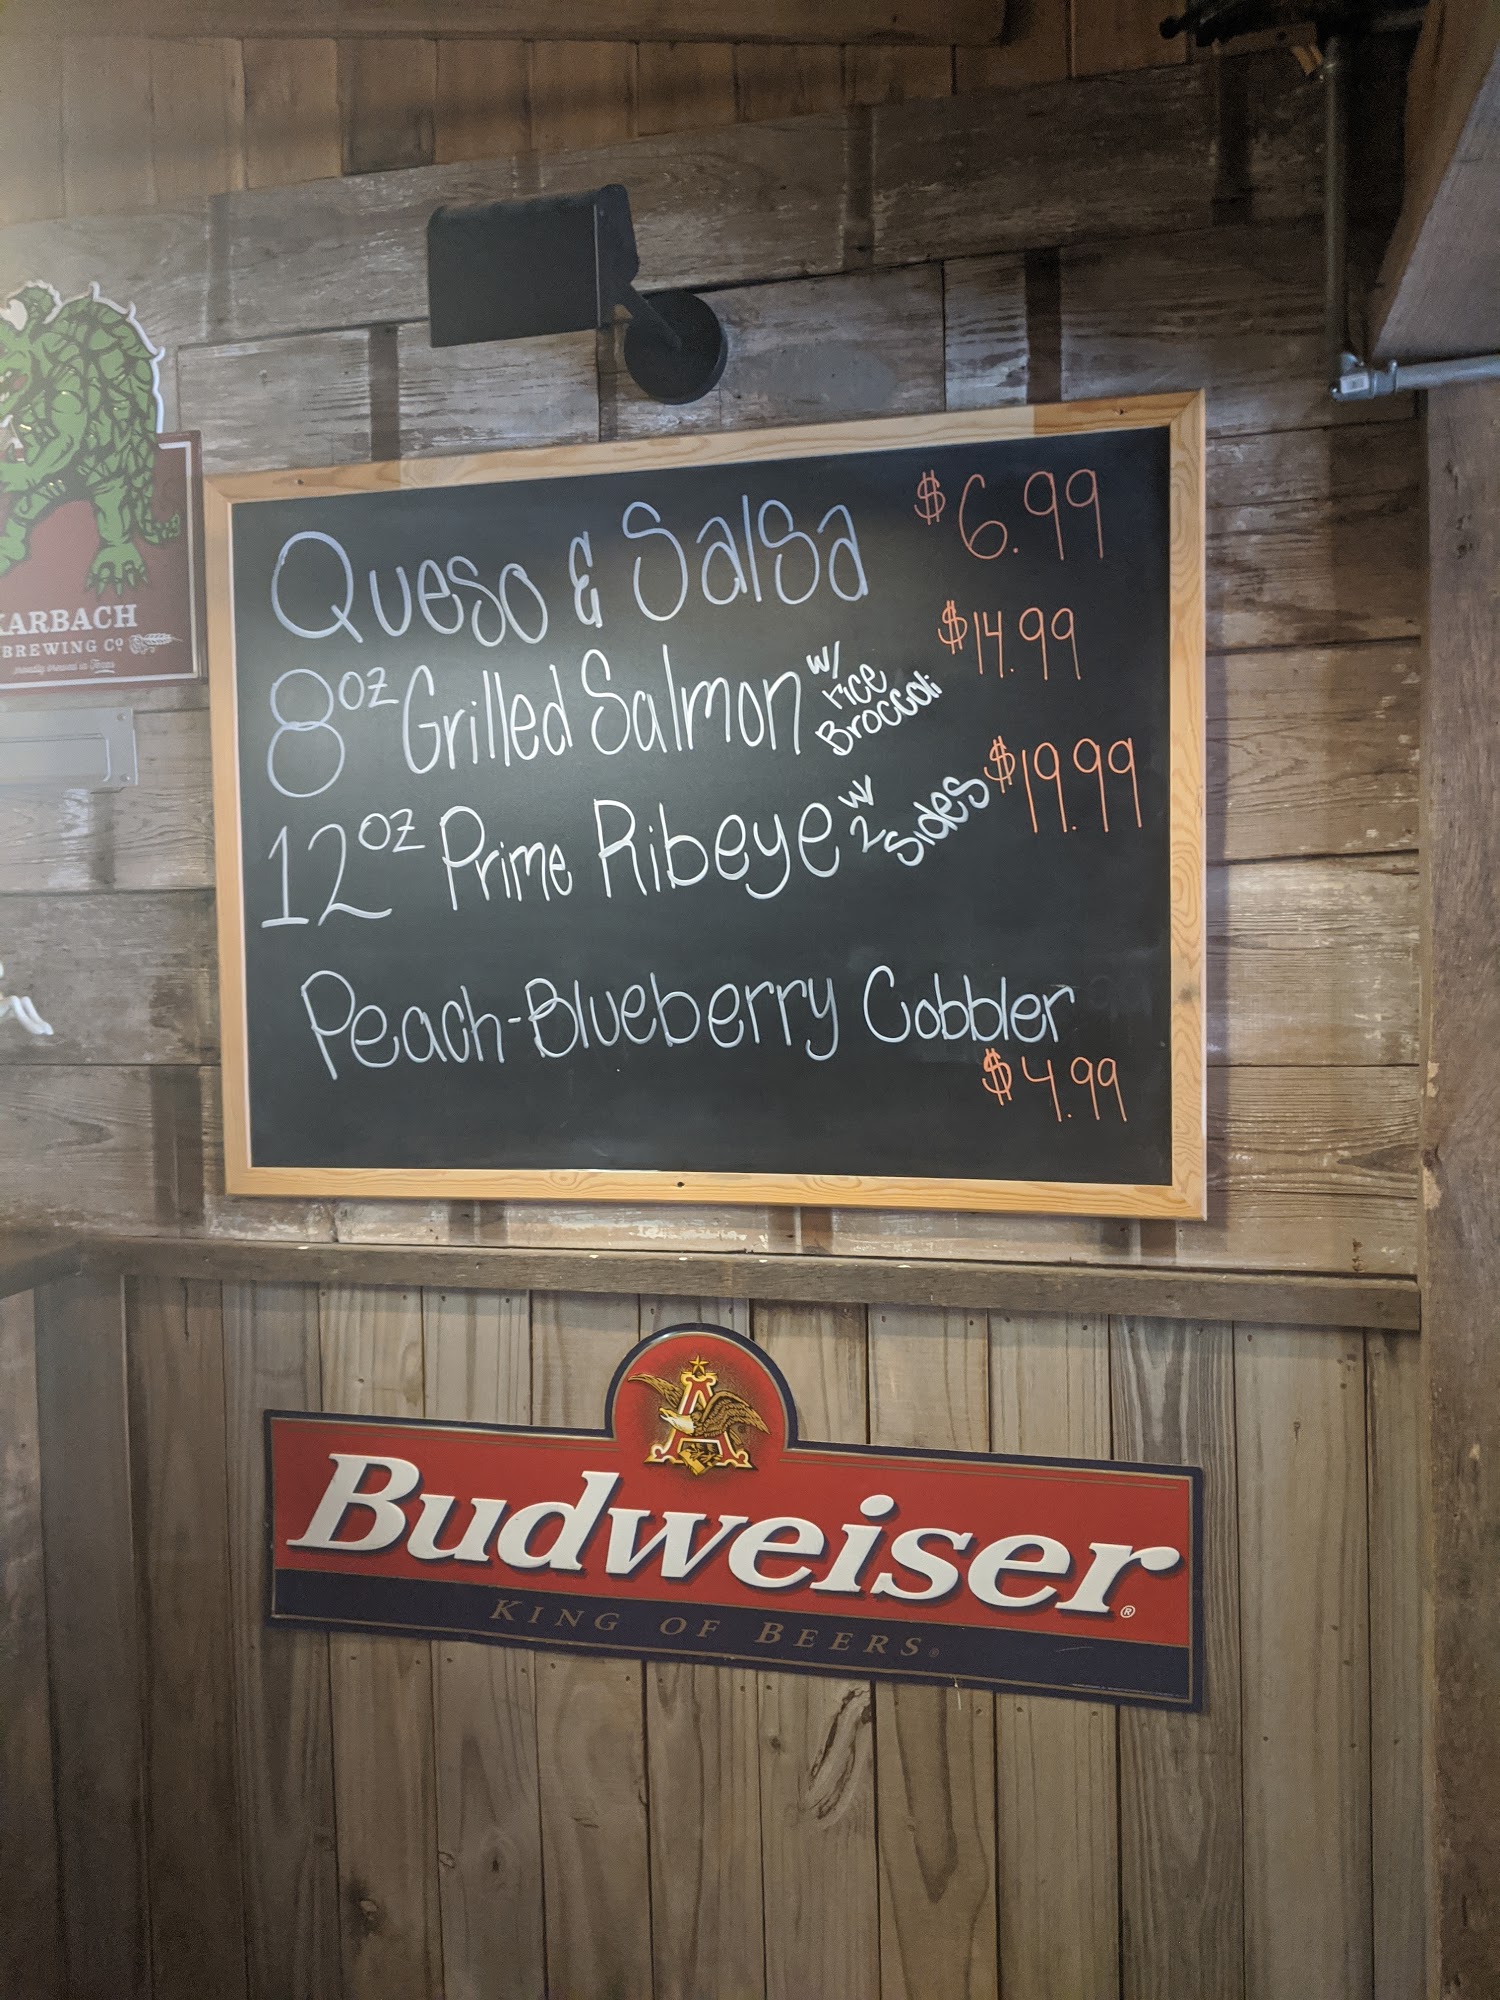 Queso & Salsa $6.99
8oz Grilled Salmon w/ rice Broccoli $14.99
12oz Prime Ribeye w/ 2 sides $19.99
Peach-Blueberry Cobbler
$4.99
KARBACH
BREWING Co
proudly brewed in Texas
A
Budweiser®
KING OF BEERS®